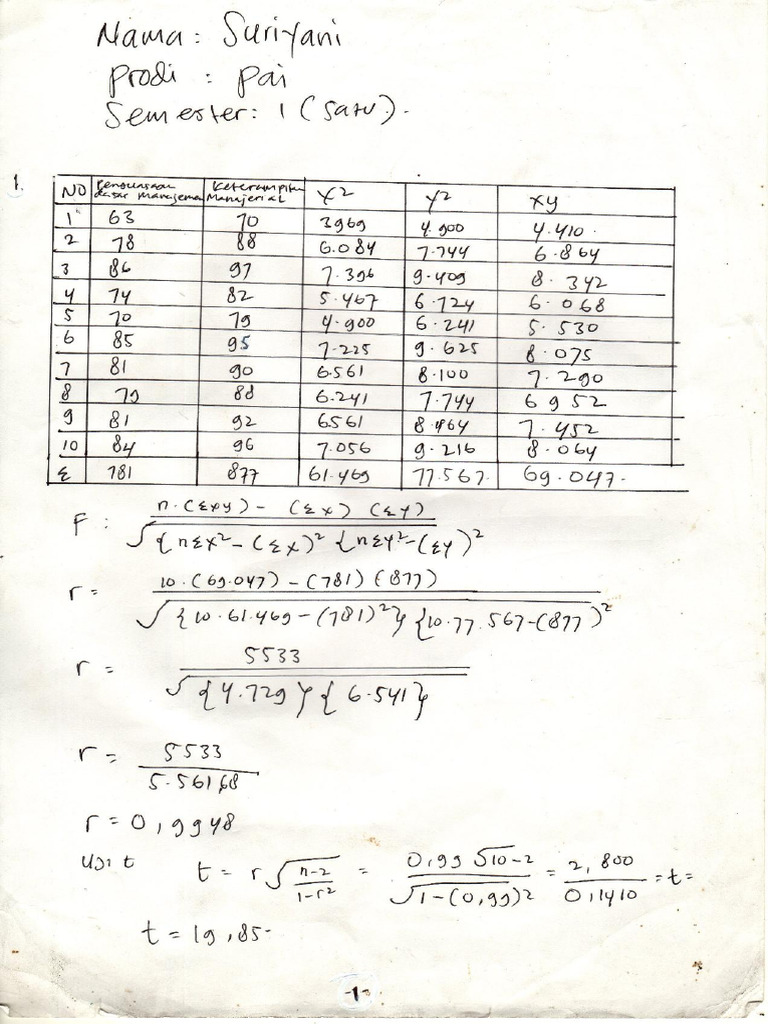 Nama : Suriyani
Prodi : Pai
Semester : 1 (satu).
1.
NO Penguasaan dasar manajemen Keterampilan Manajerial X2 Y2 XY
1 63 70 3969 4.900 4.410.
2 78 88 6.084 7.744 6.864
3 86 97 7.396 9.409 8.342
4 74 82 5.467 6.724 6.068
5 70 79 4.900 6.241 5.530
6 85 95 7.225 9.625 8.075
7 81 90 6.561 8.100 7.290
8 79 88 6.241 7.744 6952
9 81 92 6561 8.464 7.452
10 84 96 7.056 9.216 8.064
Σ 781 877 61.469 77.567. 69.047.
F : n.(Σxy) - (Σx) (Σy) / √{nΣx² - (Σx)² {nΣy² - (Σy)²
r = 10.(69.047) - (781) (877) / √{10.61.469 - (781)²} {10.77.567 - (877)²
r = 5533 / √{4.729} {6.541}
r = 5533 / 5.56168
r = 0,9948
Uji t t = r√n-2/1-r² = 0,99 √10-2 / √1-(0,99)2 = 2,800 / 0,1410 = t =
t = 19,85-
-1-